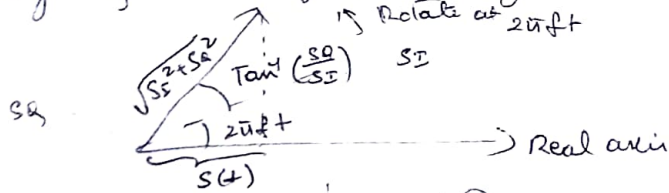 Rotate at 2πft
√SI²+SQ²
Tan⁻¹ (SQ/SI) SI
SQ
2πft
Real axis
S(t)